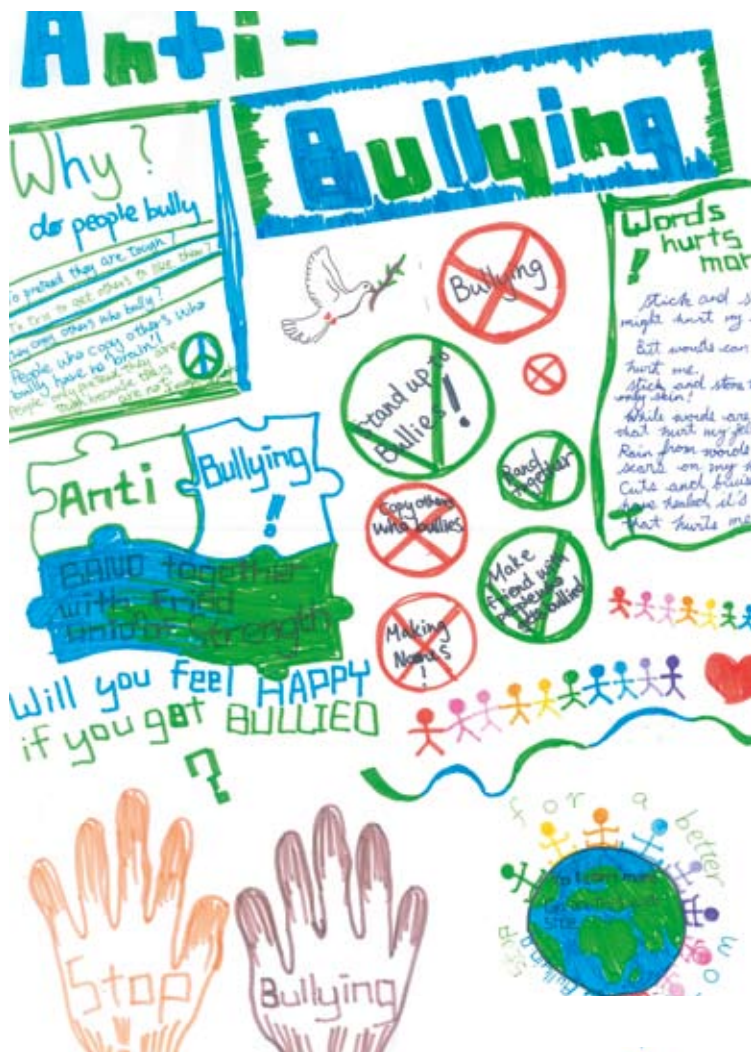 Anti-
Bullying
Why?
do people bully
To pretend they are tough?
To try to get others to like them?
They copy others who bully?
People who copy others who
bully have no "brain"!
People only pretend they are
tough because they
are not
Words
hurts
mor
!
Stick and s
might hurt my
But words can
hurt me.
Stick and stone
only skin!
While words are
that hurt my
Rain from words
scars on my
Cuts and
have healed it's
that hurts m
Bullying
Stand up to
Bullies!
Band
together
Copy others
who bullies
Make
friend with
people who
gets bullied
Making
Names
!
Anti
Bullying
!
BAND together
with
Strength
Will you feel HAPPY
if you got BULLIED
?
Stop
Bullying
!
for a better
wo
stop
Bullying